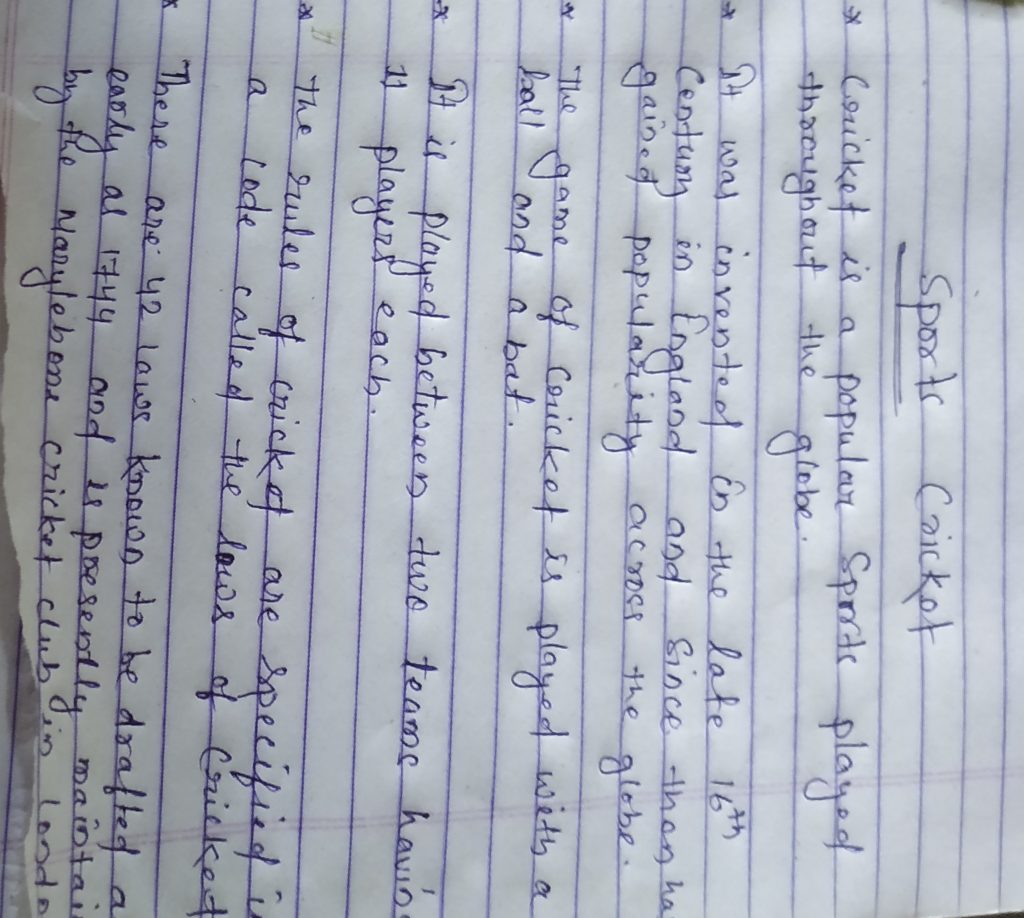 Sports Cricket
* Cricket is a popular Sports played
throughout the globe.
* It was invented in the late 16th
Century in England and Since than ha
gained popularity across the globe.
* The game of Cricket is played with a
ball and a bat.
* It is played between two teams havin
11 players each.
* The rules of cricket are specified i
a Code called the laws of Cricket
* There are 42 laws known to be drafted a
early as 1744 and is presently maintai
by the Marylebone cricket club in Londo